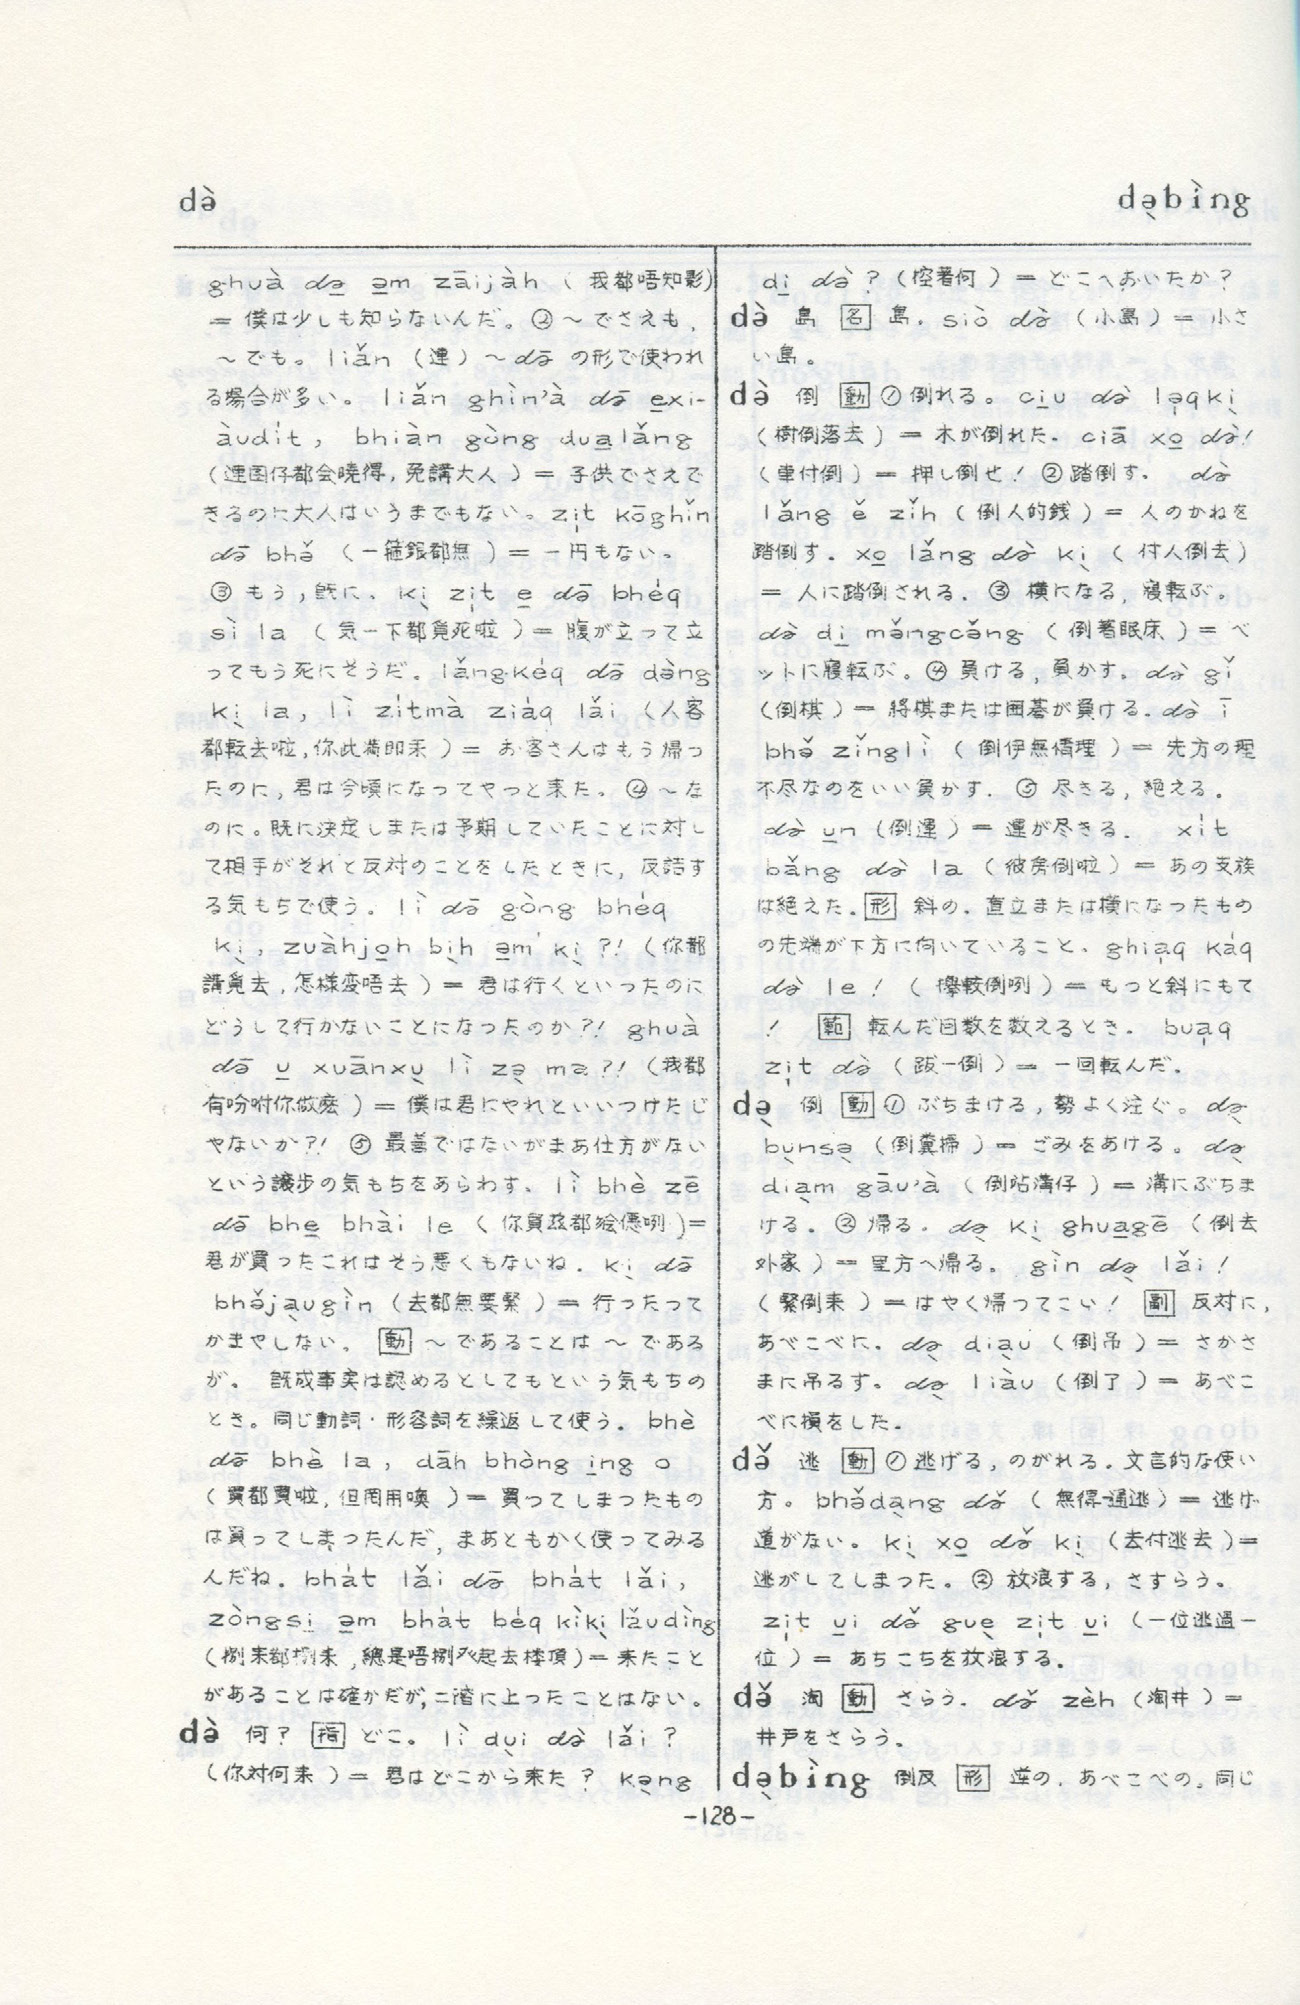 də̀
də̖bìng
ghuà də̄ ə̱m zāijàh (我都唔知影)
＝僕は少しも知らないんだ。②～でさえも，
～でも。liǎn (連)～də̄ の形で使われ
る場合が多い。liǎn ghìn'à də̄ e̱xi-
àudi̍t, bhiàn gòng dua̱lǎng
(連囡仔都会曉得,免講大人)＝子供でさえで
きるのに大人はいうまでもない。zi̩t kōghǐn
də̄ bhə̌ (一箍銀都無)＝一円もない。
③もう,既に、ki̖ zi̩t e̱ də̄ bhe̍q
sì la (気一下都覓死啦)＝腹が立って立
ってもう死にそうだ。lǎngke̍q də̄ də̀ng
ki̖ la, lì zi̍tmà zia̍q lǎi (人客
都転去啦,你此満即来)＝お客さんはもう帰っ
たのに,君は今頃になってやっと来た。④～な
のに。既に決定しまたは予期していたことに対し
て相手がそれと反対のことをしたときに,反詰す
る気もちで使う。lì də̄ gòng bhe̍q
ki̖, zuàhjo̱h bi̖h ə̱m' ki̖?! (你都
講覓去,怎様変唔去)＝君は行くといったのに
どうして行かないことになったのか?! ghuà
də̄ u̱ xuānxu̖ lì zə̖ ma?! (我都
有吩咐你做麽)＝僕は君にやれといいつけたじ
ゃないか?! ⑤最善ではないがまあ仕方がない
という譲歩の気もちをあらわす、lì bhè zē
də̄ bhe̱ bhài le (你買玆都𣍐僫咧)＝
君が買ったこれはそう悪くもないね．ki̖ də̄
bhə̌ja̖ugìn (去都無要緊)＝行ったって
かまやしない。 動 ～であることは～である
が。既成事実は認めるとしてもという気もちの
とき。同じ動詞・形容詞を繰返して使う。bhè
də̄ bhè la, dāh bhòng i̱ng o
(買都買啦,但罔用喚)＝買ってしまったもの
は買ってしまったんだ,まあともかく使ってみる
んだね．bha̍t lǎi də̄ bha̍t lǎi,
zòngsi̱ ə̱m bha̍t bé̍q kìki̖ lǎudìng
(捌来都捌来,總是唔捌癶起去楼頂)＝来たこと
があることは確かだが,二階に上ったことはない。
də̀ 何? 指 どこ。lì du̖i də̀ lǎi?
(你対何来)＝君はどこから来た? kə̖ng
di̱ də̀? (控著何)＝どこへおいたか?
də̀ 島 名 島．siò də̀ (小島)＝小さ
い島。
də̀ 倒 動 ①倒れる。ci̱u də̀ lə̩qki̖
(樹倒落去)＝木が倒れた．ciā xo̱ də̀!
(車付倒)＝押し倒せ! ②踏倒す． də̀
lǎng ě zǐh (倒人的銭)＝人のかねを
踏倒す．xo̱ lǎng də̀ ki̖ (付人倒去)
＝人に踏倒される．③横になる,寝転ぶ。
də̀ di̱ mə̌ngcə̌ng (倒著眠床)＝ベ
ットに寝転ぶ。④負ける,負かす。də̀ gǐ
(倒棋)＝将棋または囲碁が負ける．də̀ ī
bhə̌ zǐnglì (倒伊無情理)＝先方の理
不尽なのをいい負かす．⑤尽きる,絶える。
də̀ u̱n (倒運)＝運が尽きる． xi̍t
bǎng də̀ la (彼房倒啦)＝あの支族
は絶えた．形 斜の．直立または横になったもの
の先端が下方に向いていること．ghia̩q ka̍q
də̀ le! (攑較倒咧)＝もっと斜にもて
! 範 転んだ回数を数えるとき。bua̩q
zi̩t də̀ (跋一倒)＝一回転んだ．
də̖ 倒 動 ①ぶちまける,勢よく注ぐ。də̖
bu̖nsə̖ (倒糞掃)＝ごみをあける。də̖
dia̖m gāu'à (倒坫溝仔)＝溝にぶちま
ける。②帰る．də̖ ki̖ ghua̱gē (倒去
外家)＝里方へ帰る。gìn də̖ lǎi!
(緊倒来)＝はやく帰ってこい! 副 反対に,
あべこべに．də̖ dia̖u (倒吊)＝さかさ
まに吊るす。də̖ liàu (倒了)＝あべこ
べに損をした．
də̌ 逃 動 ①逃げる,のがれる．文言的な使い
方。bhə̌da̖ng də̌ (無得通逃)＝逃げ
道がない。ki̖ xo̱ də̌ ki̖ (去付逃去)＝
逃がしてしまった。②放浪する,さすらう。
zi̩t u̱i də̌ gue̖ zi̩t u̱i (一位逃過一
位)＝あちこちを放浪する．
də̌ 淘 動 さらう．də̌ zèh (淘井)＝
井戸をさらう。
də̖bìng 倒反 形 逆の．あべこべの。同じ
-128-